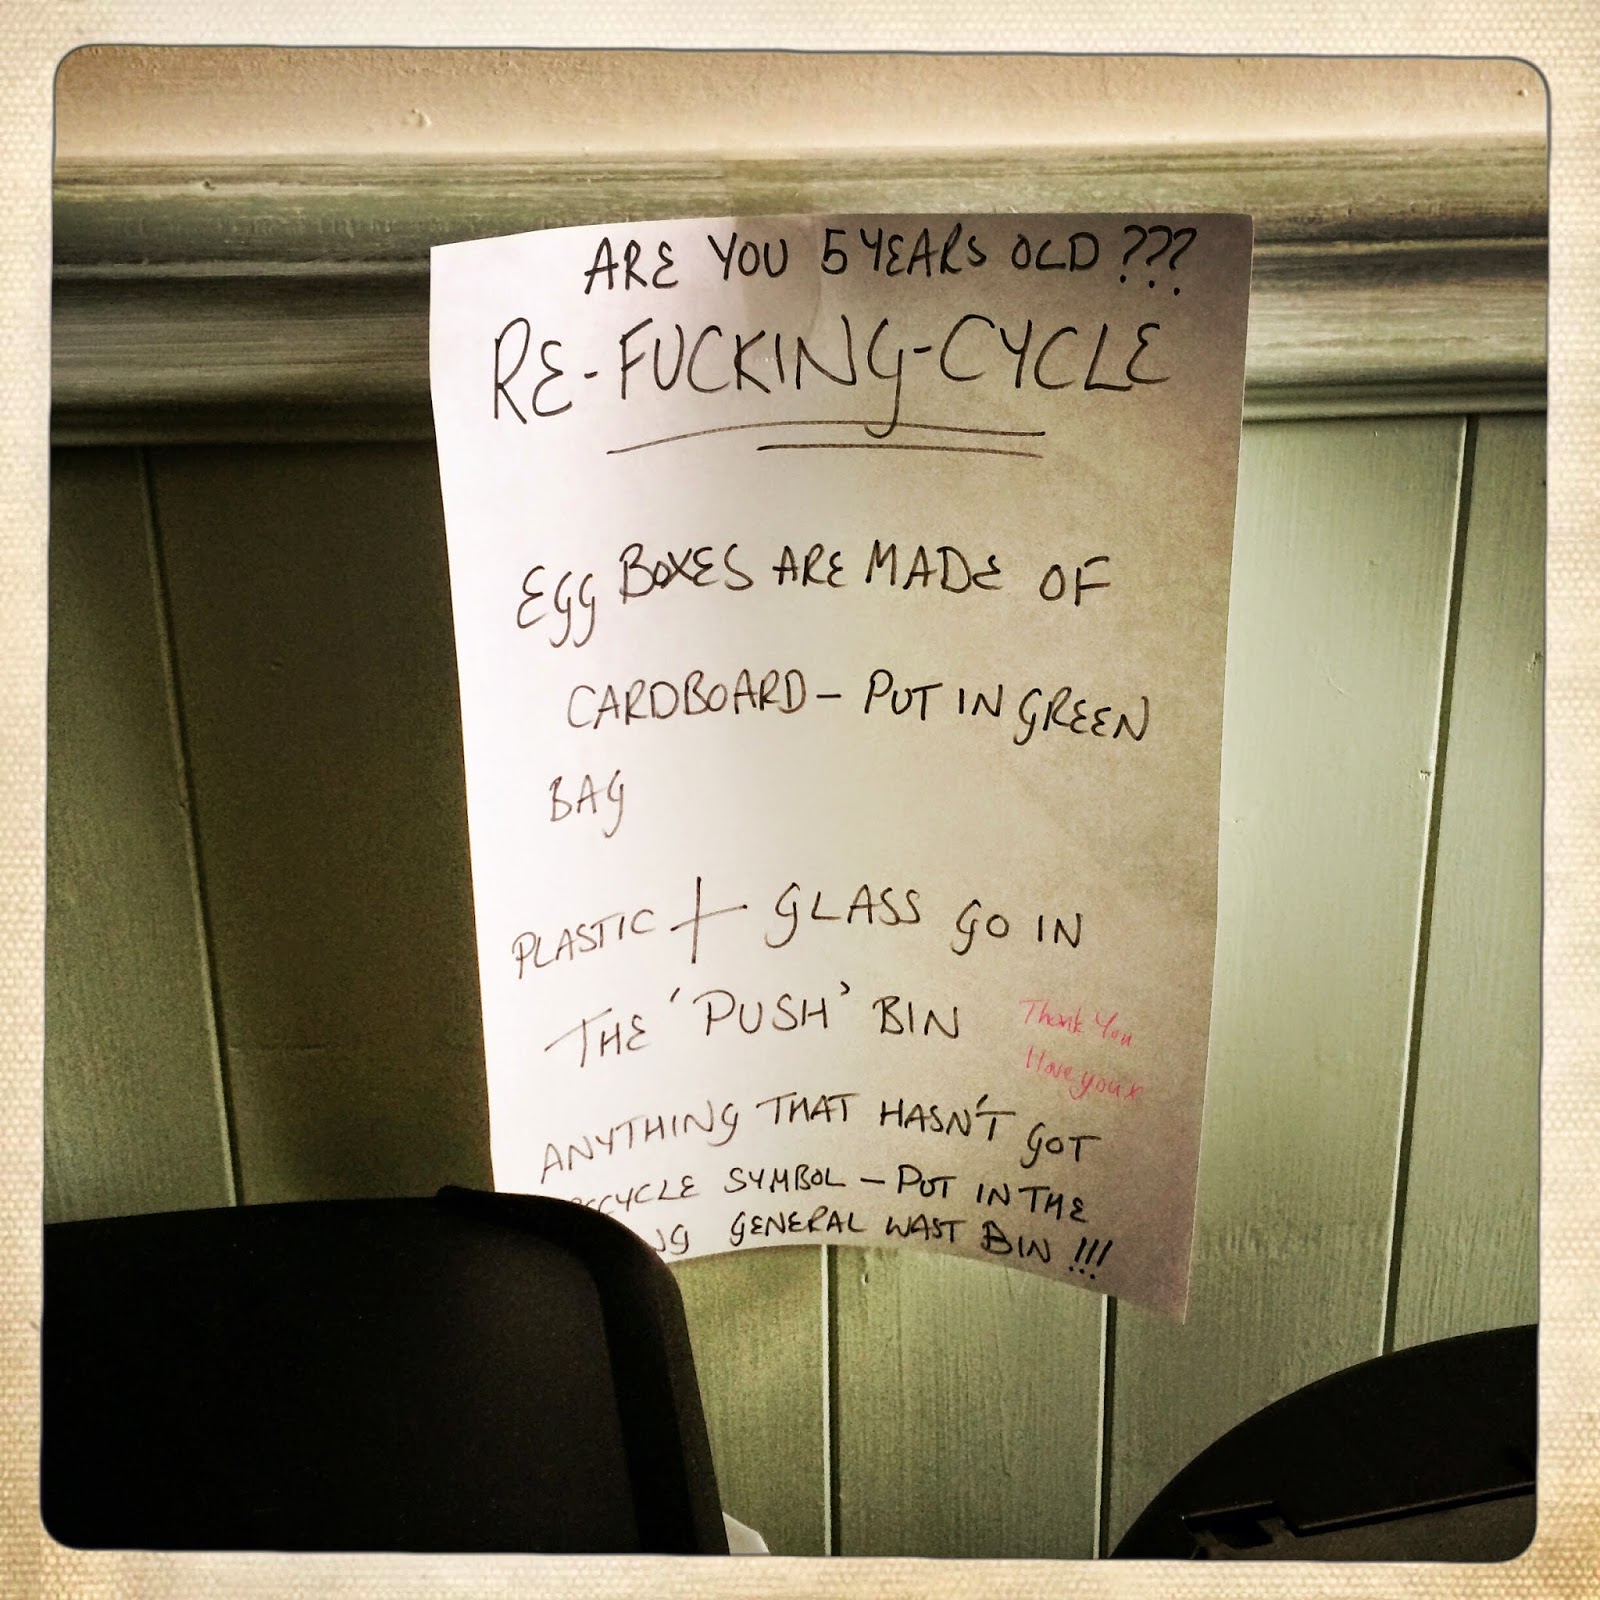 ARE YOU 5 YEARS OLD???
RE-FUCKING-CYCLE
EGG BOXES ARE MADE OF
CARDBOARD - PUT IN GREEN
BAG
PLASTIC + GLASS GO IN
THE 'PUSH' BIN
Thank You
I love you x
ANYTHING THAT HASN'T GOT
RECYCLE SYMBOL - PUT IN THE
GENERAL WAST BIN!!!